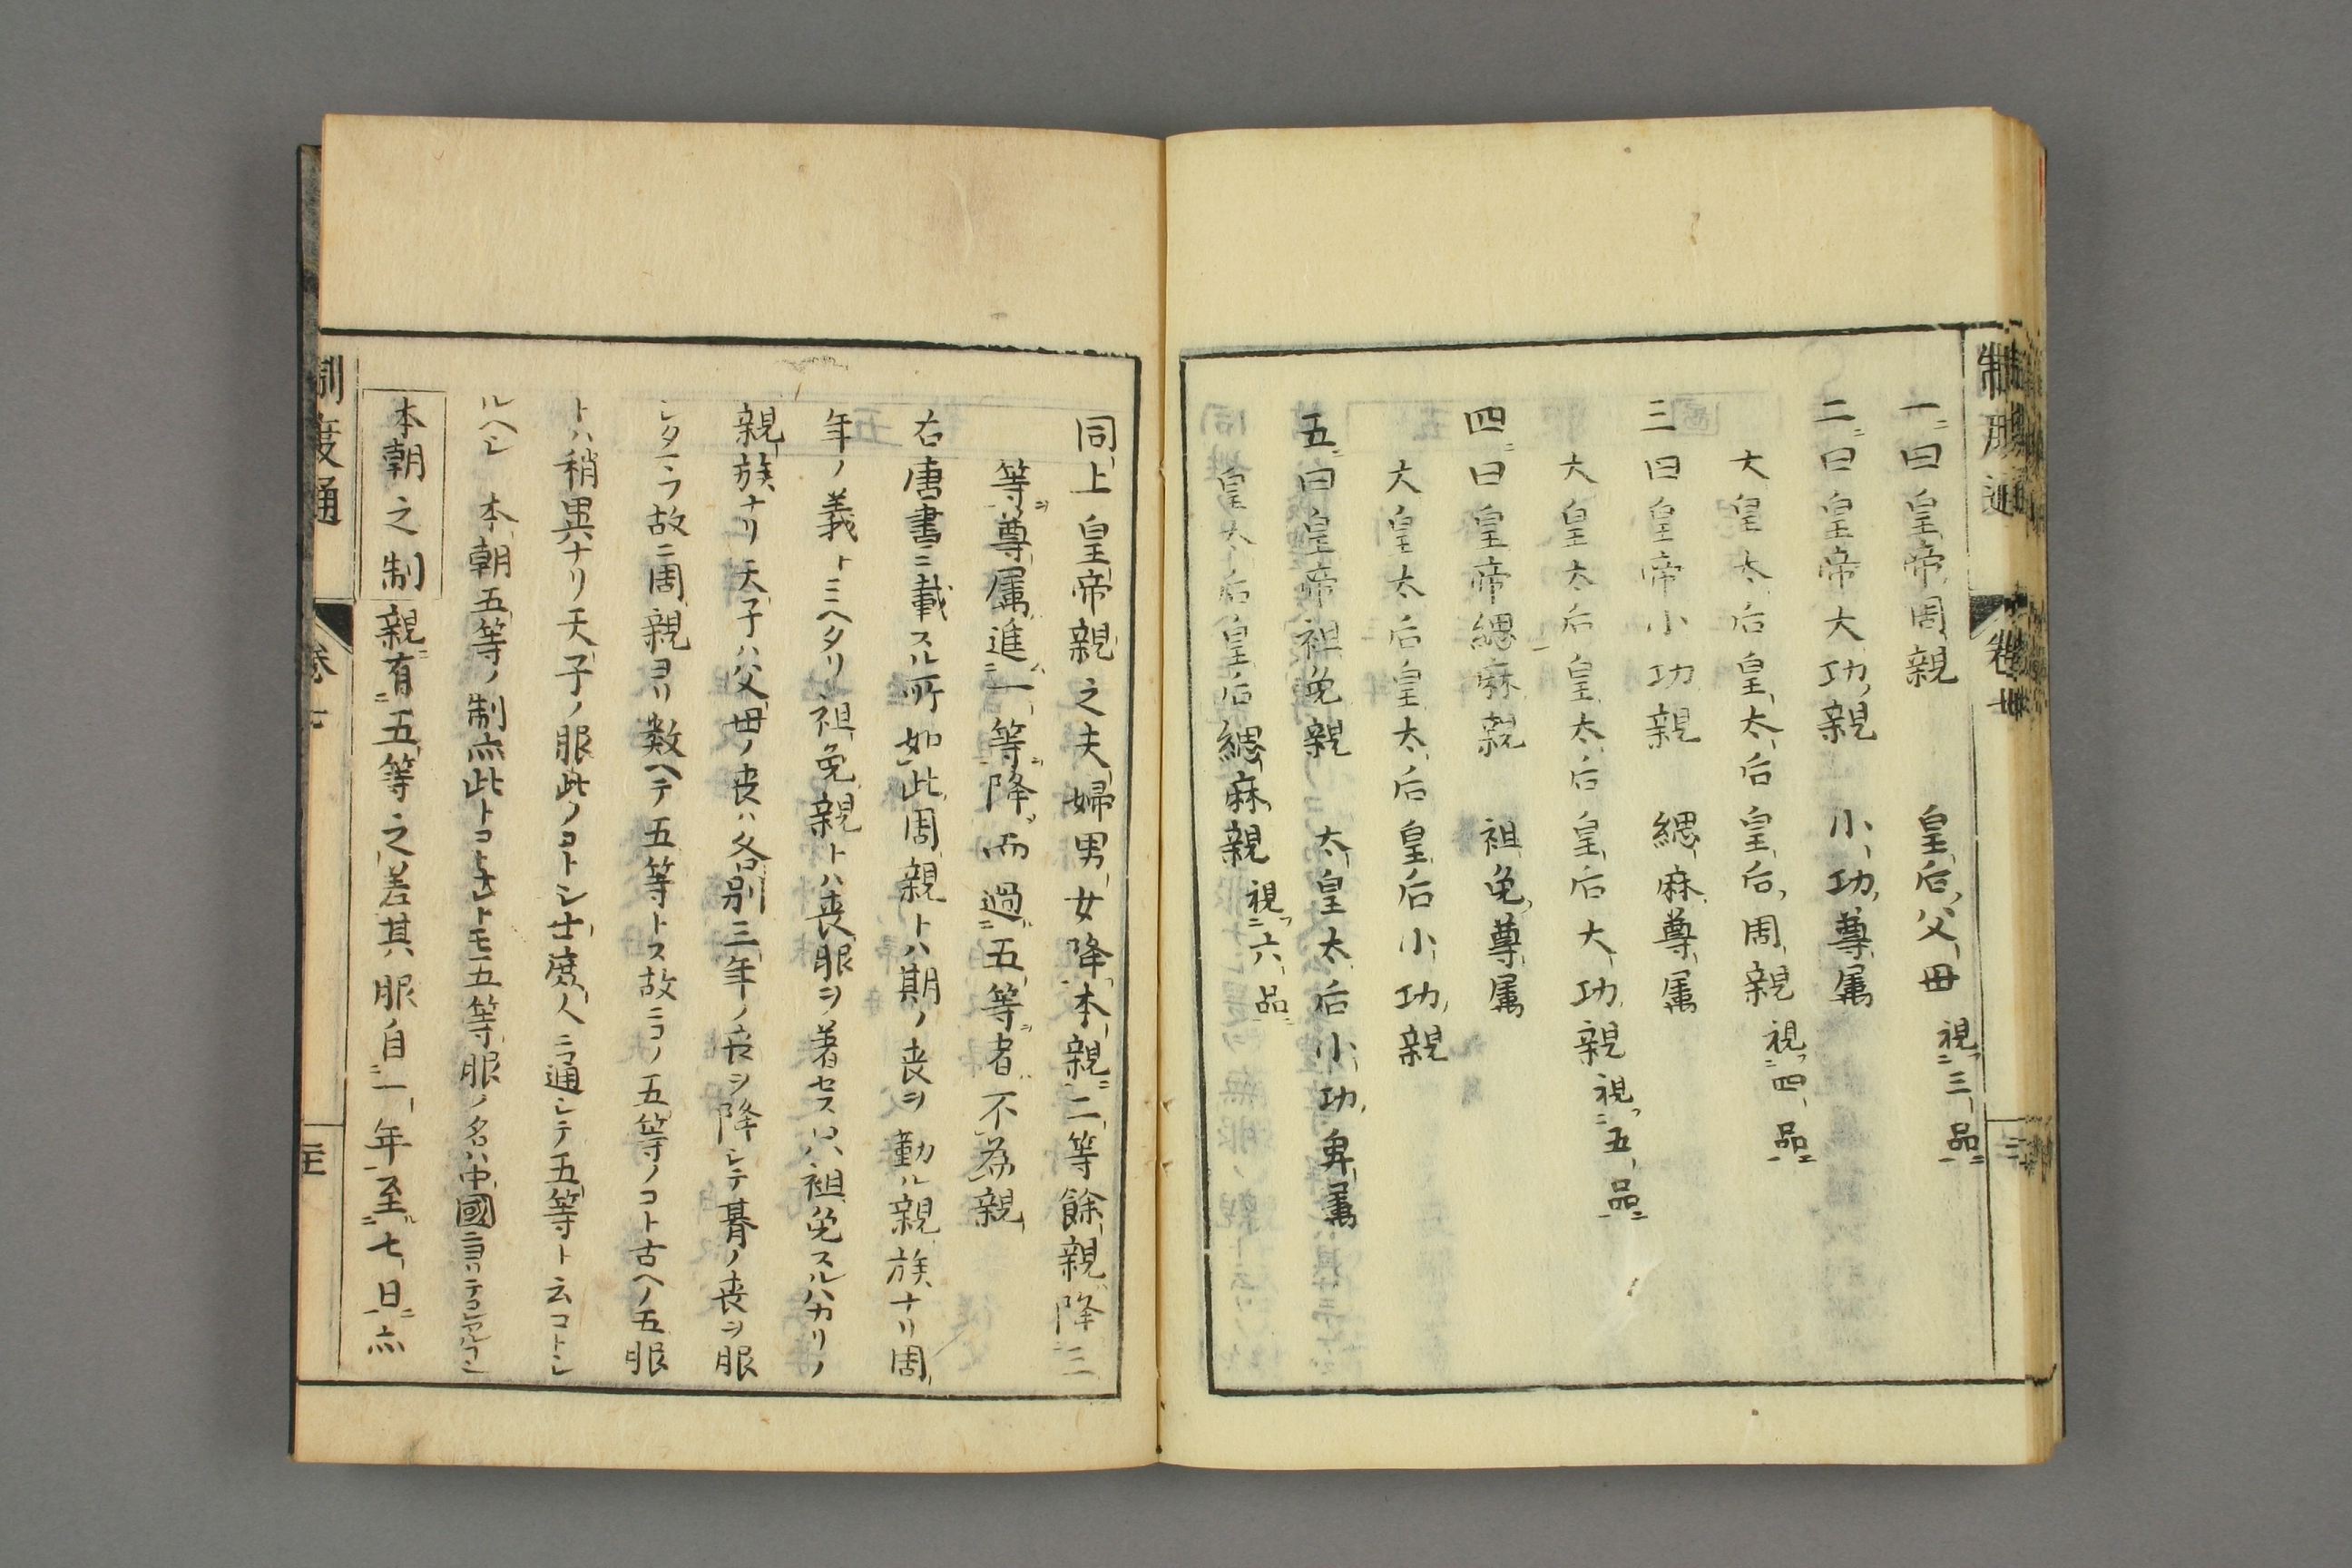 一ニ曰皇帝周親　皇后父母視フ三品ニ
二ニ曰皇帝大功親　小功尊属
大皇太后皇太后皇后周親視フ四品ニ
三曰皇帝小功親　緦麻尊属
大皇太后皇太后皇后大功親視フ五品ニ
四ニ曰皇帝緦麻親　袒免尊属
大皇太后皇太后皇后小功親
五ニ曰皇帝袒免親　太皇太后小功卑属
皇太后皇后緦麻親視フ六品ニ
同上皇帝親之夫婦男女降本親ニ二等餘親降三
等ヲ尊属進一等ヲ降而過五等ヲ者不為親
右唐書ニ載スル所如此周親トハ期ノ喪ヲ勤ル親族ナリ周
年ノ義トミヘタリ袒免親トハ喪服ヲ著セス只袒免スルハカリノ
親族ナリ天子ハ父母ノ喪ハ各別三年ノ喪ヲ降シテ朞ノ喪ヲ服
シタマフ故ニ周親ヨリ数ヘテ五等トス故ニコノ五等ノコト古ヘノ五服
トハ稍異ナリ天子ノ服此ノコトシ士庶人ニ通シテ五等ト云コトシ
ルヘシ　本朝五等ノ制亦此トコトナレトモ五等服ノ名ハ中國ニヨリテ
本朝之制親ニ有五等之差其服自一年至七日ニ亦
制度通